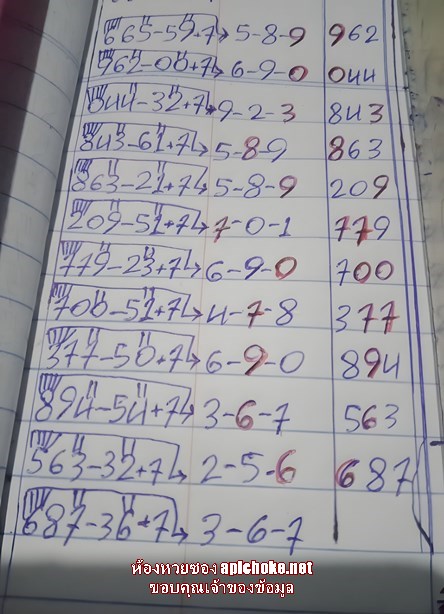 665-59+7→5-8-9 962
962-00+7→6-9-0 044
044-32+7→9-2-3 843
843-61+7→5-89 863
863-21+7→5-8-9 209
209-51+7→7-0-1 779
779-23+7→6-9-0 700
700-51+7→4-7-8 377
377-50+7→6-9-0 894
894-54+7→3-6-7 563
563-32+7→2-5-6 687
687-36+7→3-6-7
ห้องหวยซอง apichoke.net
ขอบคุณเจ้าของข้อมูล